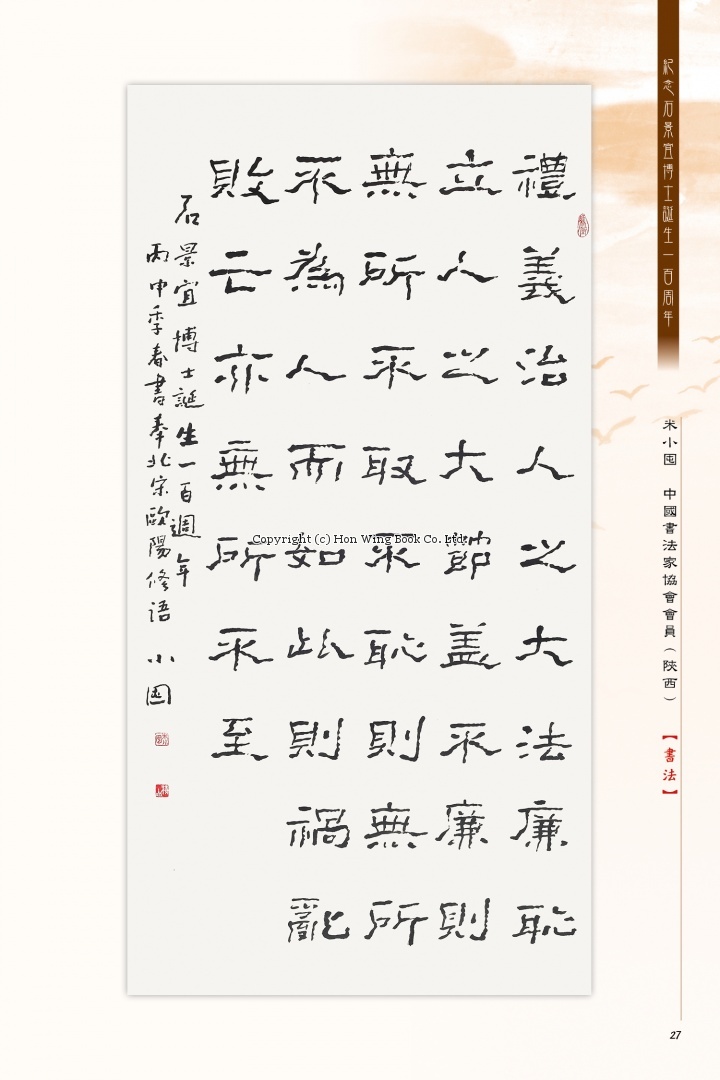 紀念石景宜博士誕生一百周年
米小囤 中國書法家協會會員（陝西）
【書法】
禮義治人之大法廉恥
立人之大節蓋不廉則
無所不取不恥則無所
不為人而如此則禍亂
敗亡亦無所不至
石景宜博士誕生一百週年
丙申季春書奉北宋歐陽修语 小囤
Copyright (c) Hon Wing Book Co. Ltd.
27